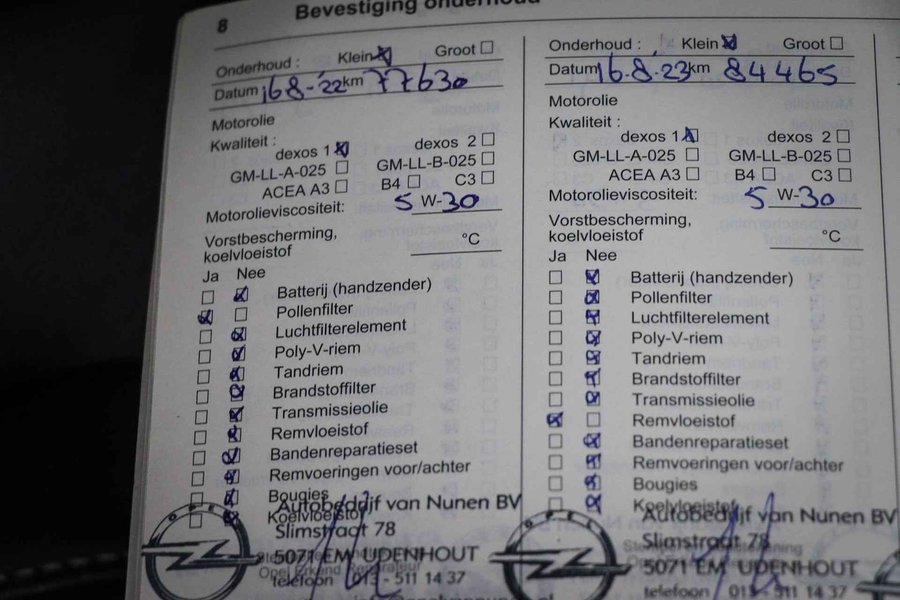 8 Bevestiging onderhoud
Onderhoud : Klein ☒ Groot ☐
Datum 16-8-'22 km 77630
Motorolie
Kwaliteit :
dexos 1 ☒ dexos 2 ☐
GM-LL-A-025 ☐ GM-LL-B-025 ☐
ACEA A3 ☐ B4 ☐ C3 ☐
Motorolieviscositeit: 5 W-30
Vorstbescherming,
koelvloeistof °C
Ja Nee
☐ ☒ Batterij (handzender)
☒ ☐ Pollenfilter
☐ ☒ Luchtfilterelement
☐ ☒ Poly-V-riem
☐ ☒ Tandriem
☐ ☒ Brandstoffilter
☐ ☒ Transmissieolie
☐ ☒ Remvloeistof
☐ ☒ Bandenreparatieset
☐ ☒ Remvoeringen voor/achter
☐ ☒ Bougies
☐ ☒ Koelvloeistof
Autobedrijf van Nunen BV
Slimstraat 78
5071 EM UDENHOUT
Opel Erkend Reparateur
telefoon 013 - 511 14 37
OPEL
Onderhoud : Klein ☒ Groot ☐
Datum 16.8.'23 km 84465
Motorolie
Kwaliteit :
dexos 1 ☒ dexos 2 ☐
GM-LL-A-025 ☐ GM-LL-B-025 ☐
ACEA A3 ☐ B4 ☐ C3 ☐
Motorolieviscositeit: 5 W-30
Vorstbescherming,
koelvloeistof °C
Ja Nee
☐ ☒ Batterij (handzender)
☐ ☒ Pollenfilter
☐ ☒ Luchtfilterelement
☐ ☒ Poly-V-riem
☐ ☒ Tandriem
☐ ☒ Brandstoffilter
☐ ☒ Transmissieolie
☒ ☐ Remvloeistof
☐ ☒ Bandenreparatieset
☐ ☒ Remvoeringen voor/achter
☐ ☒ Bougies
☐ ☒ Koelvloeistof
Autobedrijf van Nunen BV
Slimstraat 78
5071 EM UDENHOUT
telefoon 013 - 511 14 37
OPEL